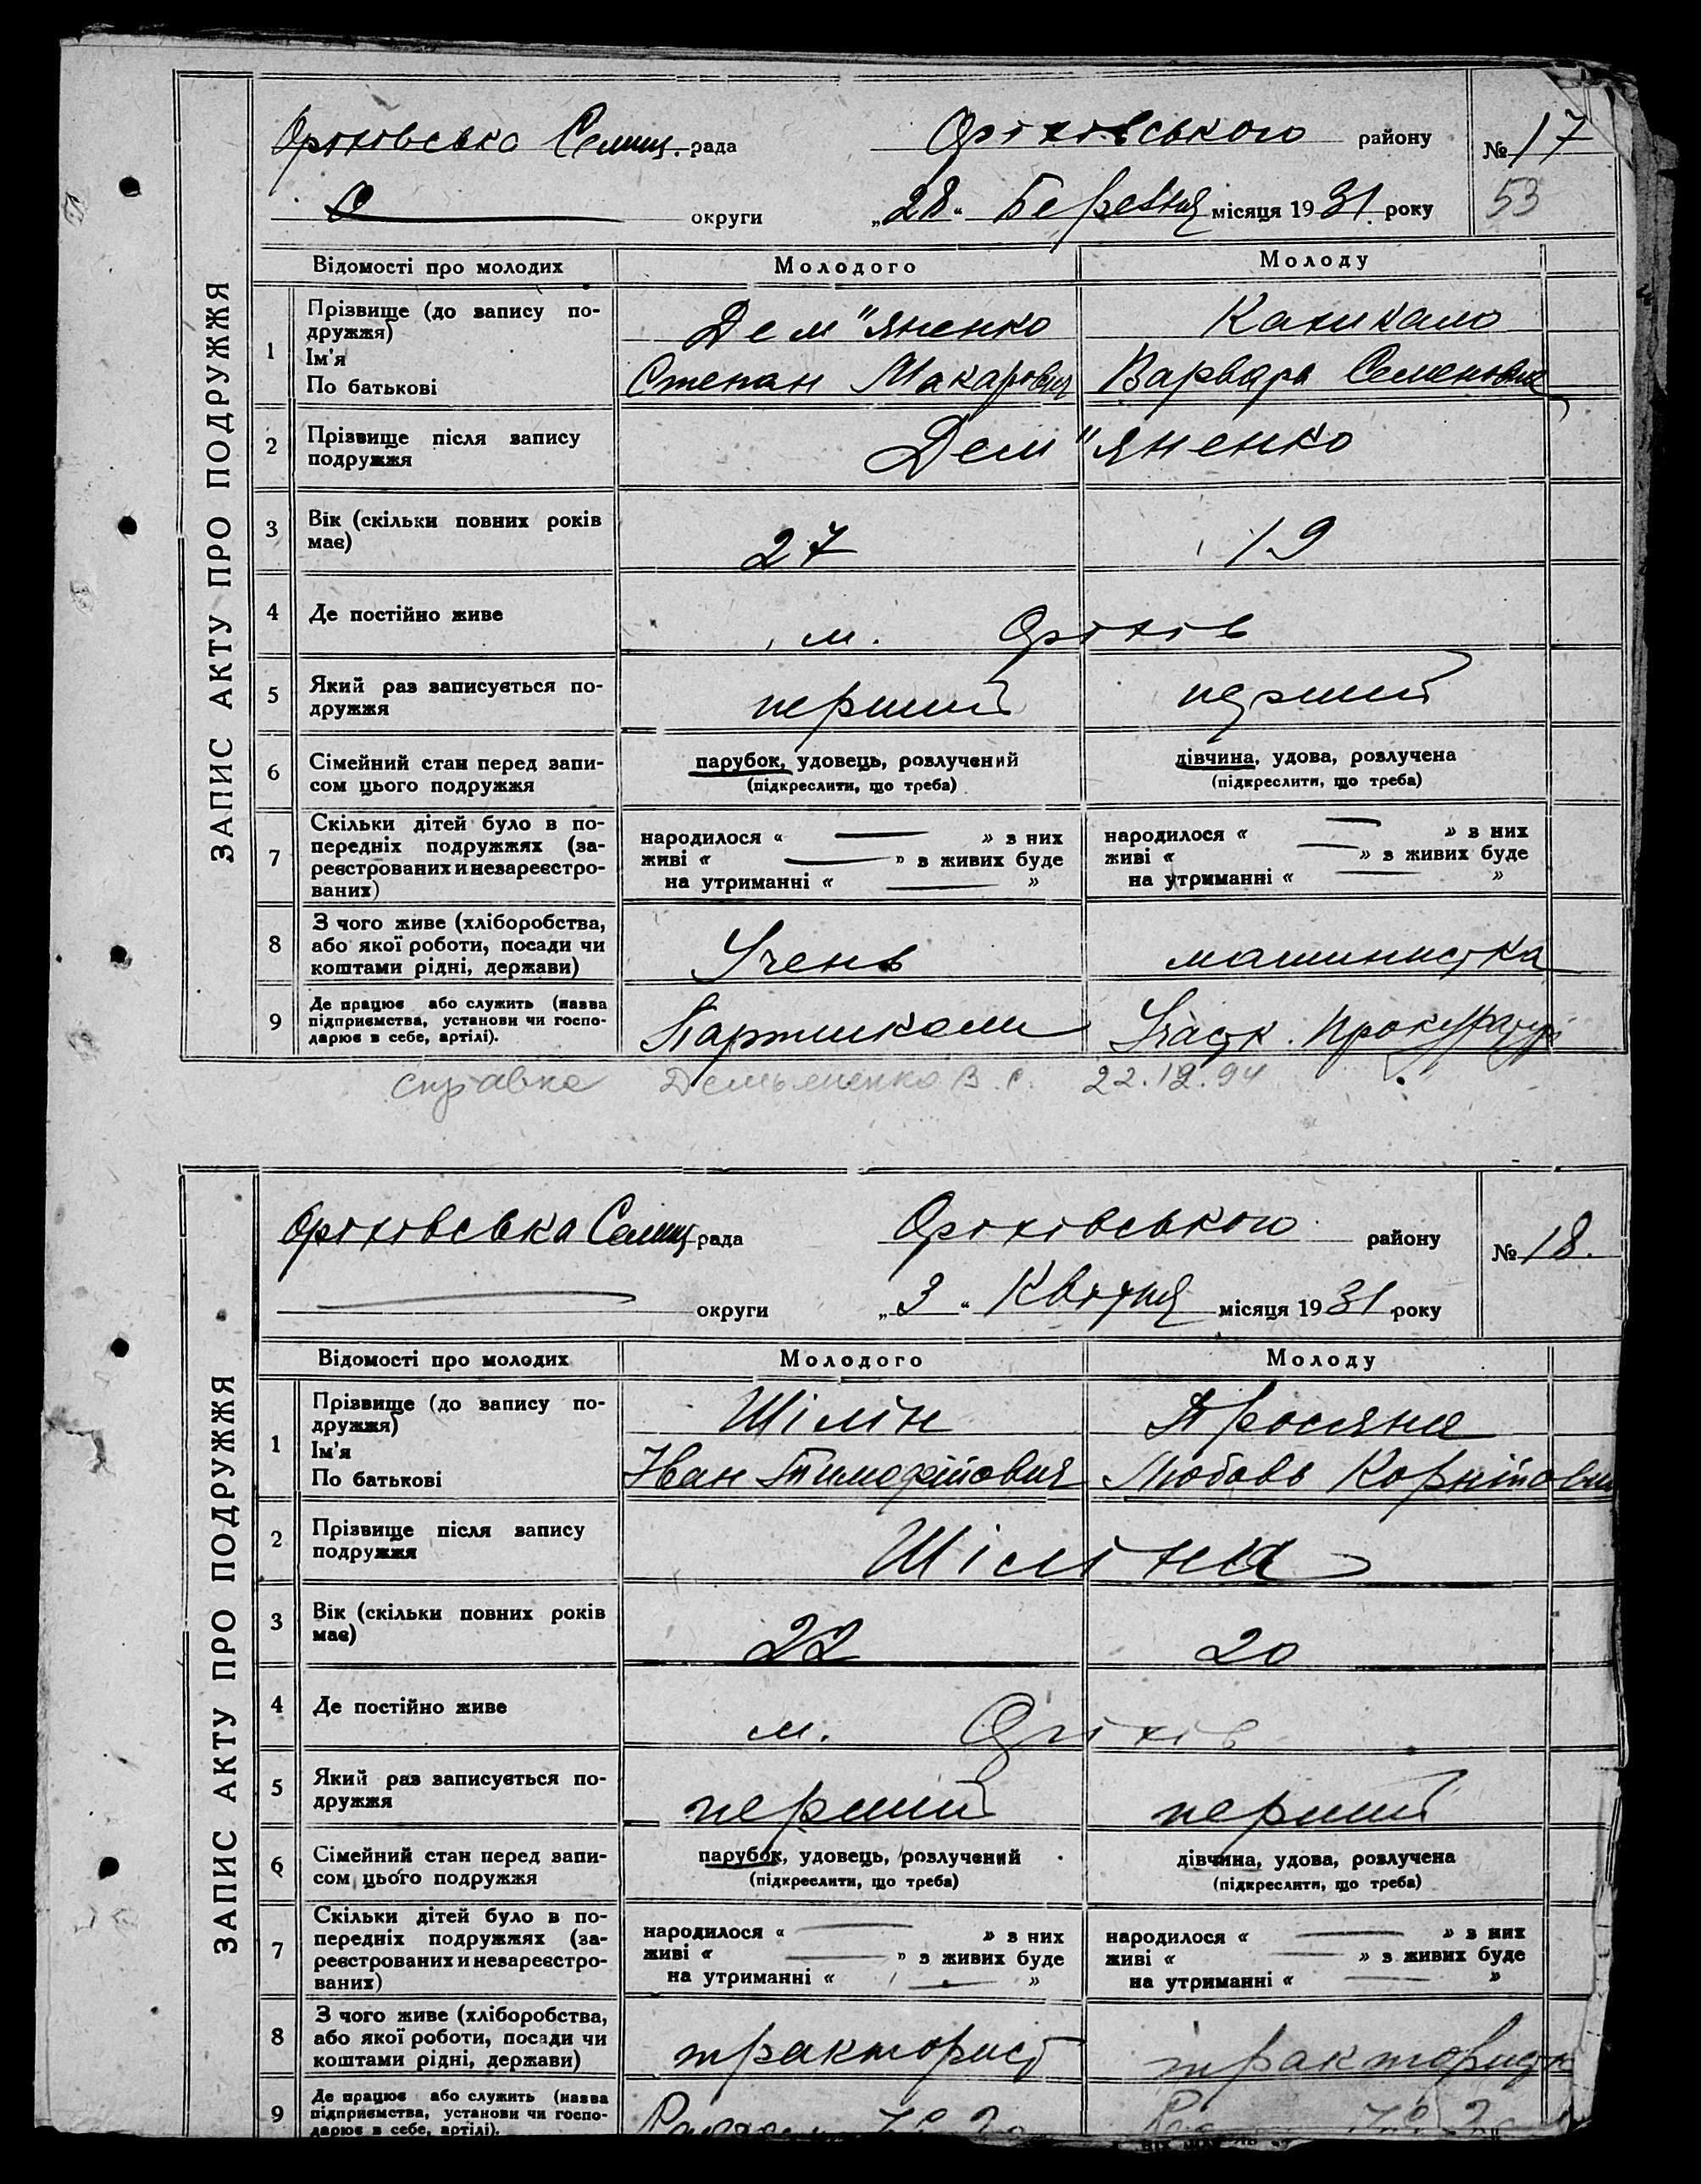 ЗАПИС АКТУ ПРО ПОДРУЖЖЯ
Оріхівська Селищ. рада Оріхівського району № 17
округи „28“ Березня місяця 1931 року 53
Відомості про молодих Молодого Молоду
1 Прізвище (до запису по-
дружжя)
Ім'я
По батькові
Дем"яненко
Степан Макарович
Варвара Семеновна
2 Прізвище після запису
подружжя
Дем"яненко
3 Вік (скільки повних років
має)
27 19
4 Де постійно живе м. Оріхів
5 Який раз записується по-
дружжя
перший перший
6 Сімейний стан перед запи-
сом цього подружжя
парубок, удовець, розлучений
(підкреслити, що треба)
дівчина, удова, розлучена
(підкреслити, що треба)
7 Скільки дітей було в по-
передніх подружжях (за-
реєстрованих и незареєстро-
ваних)
народилося « — » з них
живі « — » з живих буде
на утриманні « — »
народилося « — » з них
живі « — » з живих буде
на утриманні « — »
8 З чого живе (хліборобства,
або якої роботи, посади чи
коштами рідні, держави)
Учень машинистка
9 Де працює або служить (назва
підприємства, установи чи госпо-
дарює в себе, артілі).
Партшколи Участк. Прокуратурі
справка Демьяненко В. С. 22.12.94
ЗАПИС АКТУ ПРО ПОДРУЖЖЯ
Оріхівська Селищ рада Оріхівського району № 18.
округи „3“ Квітня місяця 1931 року
Відомості про молодих Молодого Молоду
1 Прізвище (до запису по-
дружжя)
Ім'я
По батькові
Шілін
Іван Тимофійович
Просяна
Любовь Корнійовна
2 Прізвище після запису
подружжя
Шіліна
3 Вік (скільки повних років
має)
22 20
4 Де постійно живе м. Оріхів
5 Який раз записується по-
дружжя
перший перший
6 Сімейний стан перед запи-
сом цього подружжя
парубок, удовець, розлучений
(підкреслити, що треба)
дівчина, удова, розлучена
(підкреслити, що треба)
7 Скільки дітей було в по-
передніх подружжях (за-
реєстрованих и незареєстро-
ваних)
народилося « — » з них
живі « — » з живих буде
на утриманні « — »
народилося « — » з них
живі « — » з живих буде
на утриманні « — »
8 З чого живе (хліборобства,
або якої роботи, посади чи
коштами рідні, держави)
тракторист трактористка
9 Де працює або служить (назва
підприємства, установи чи госпо-
дарює в себе, артілі).